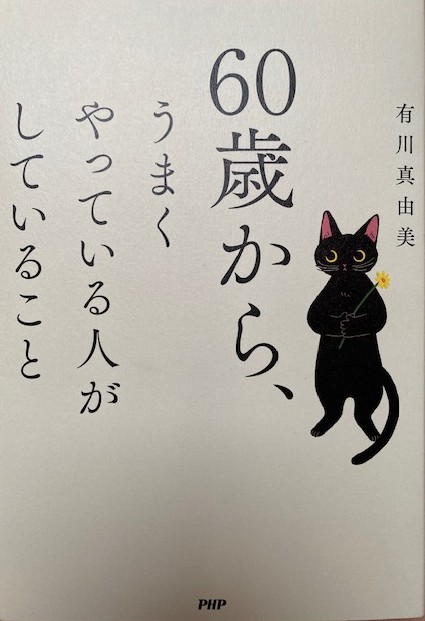 有川真由美
60歳から、
うまく
やっている人が
していること
PHP